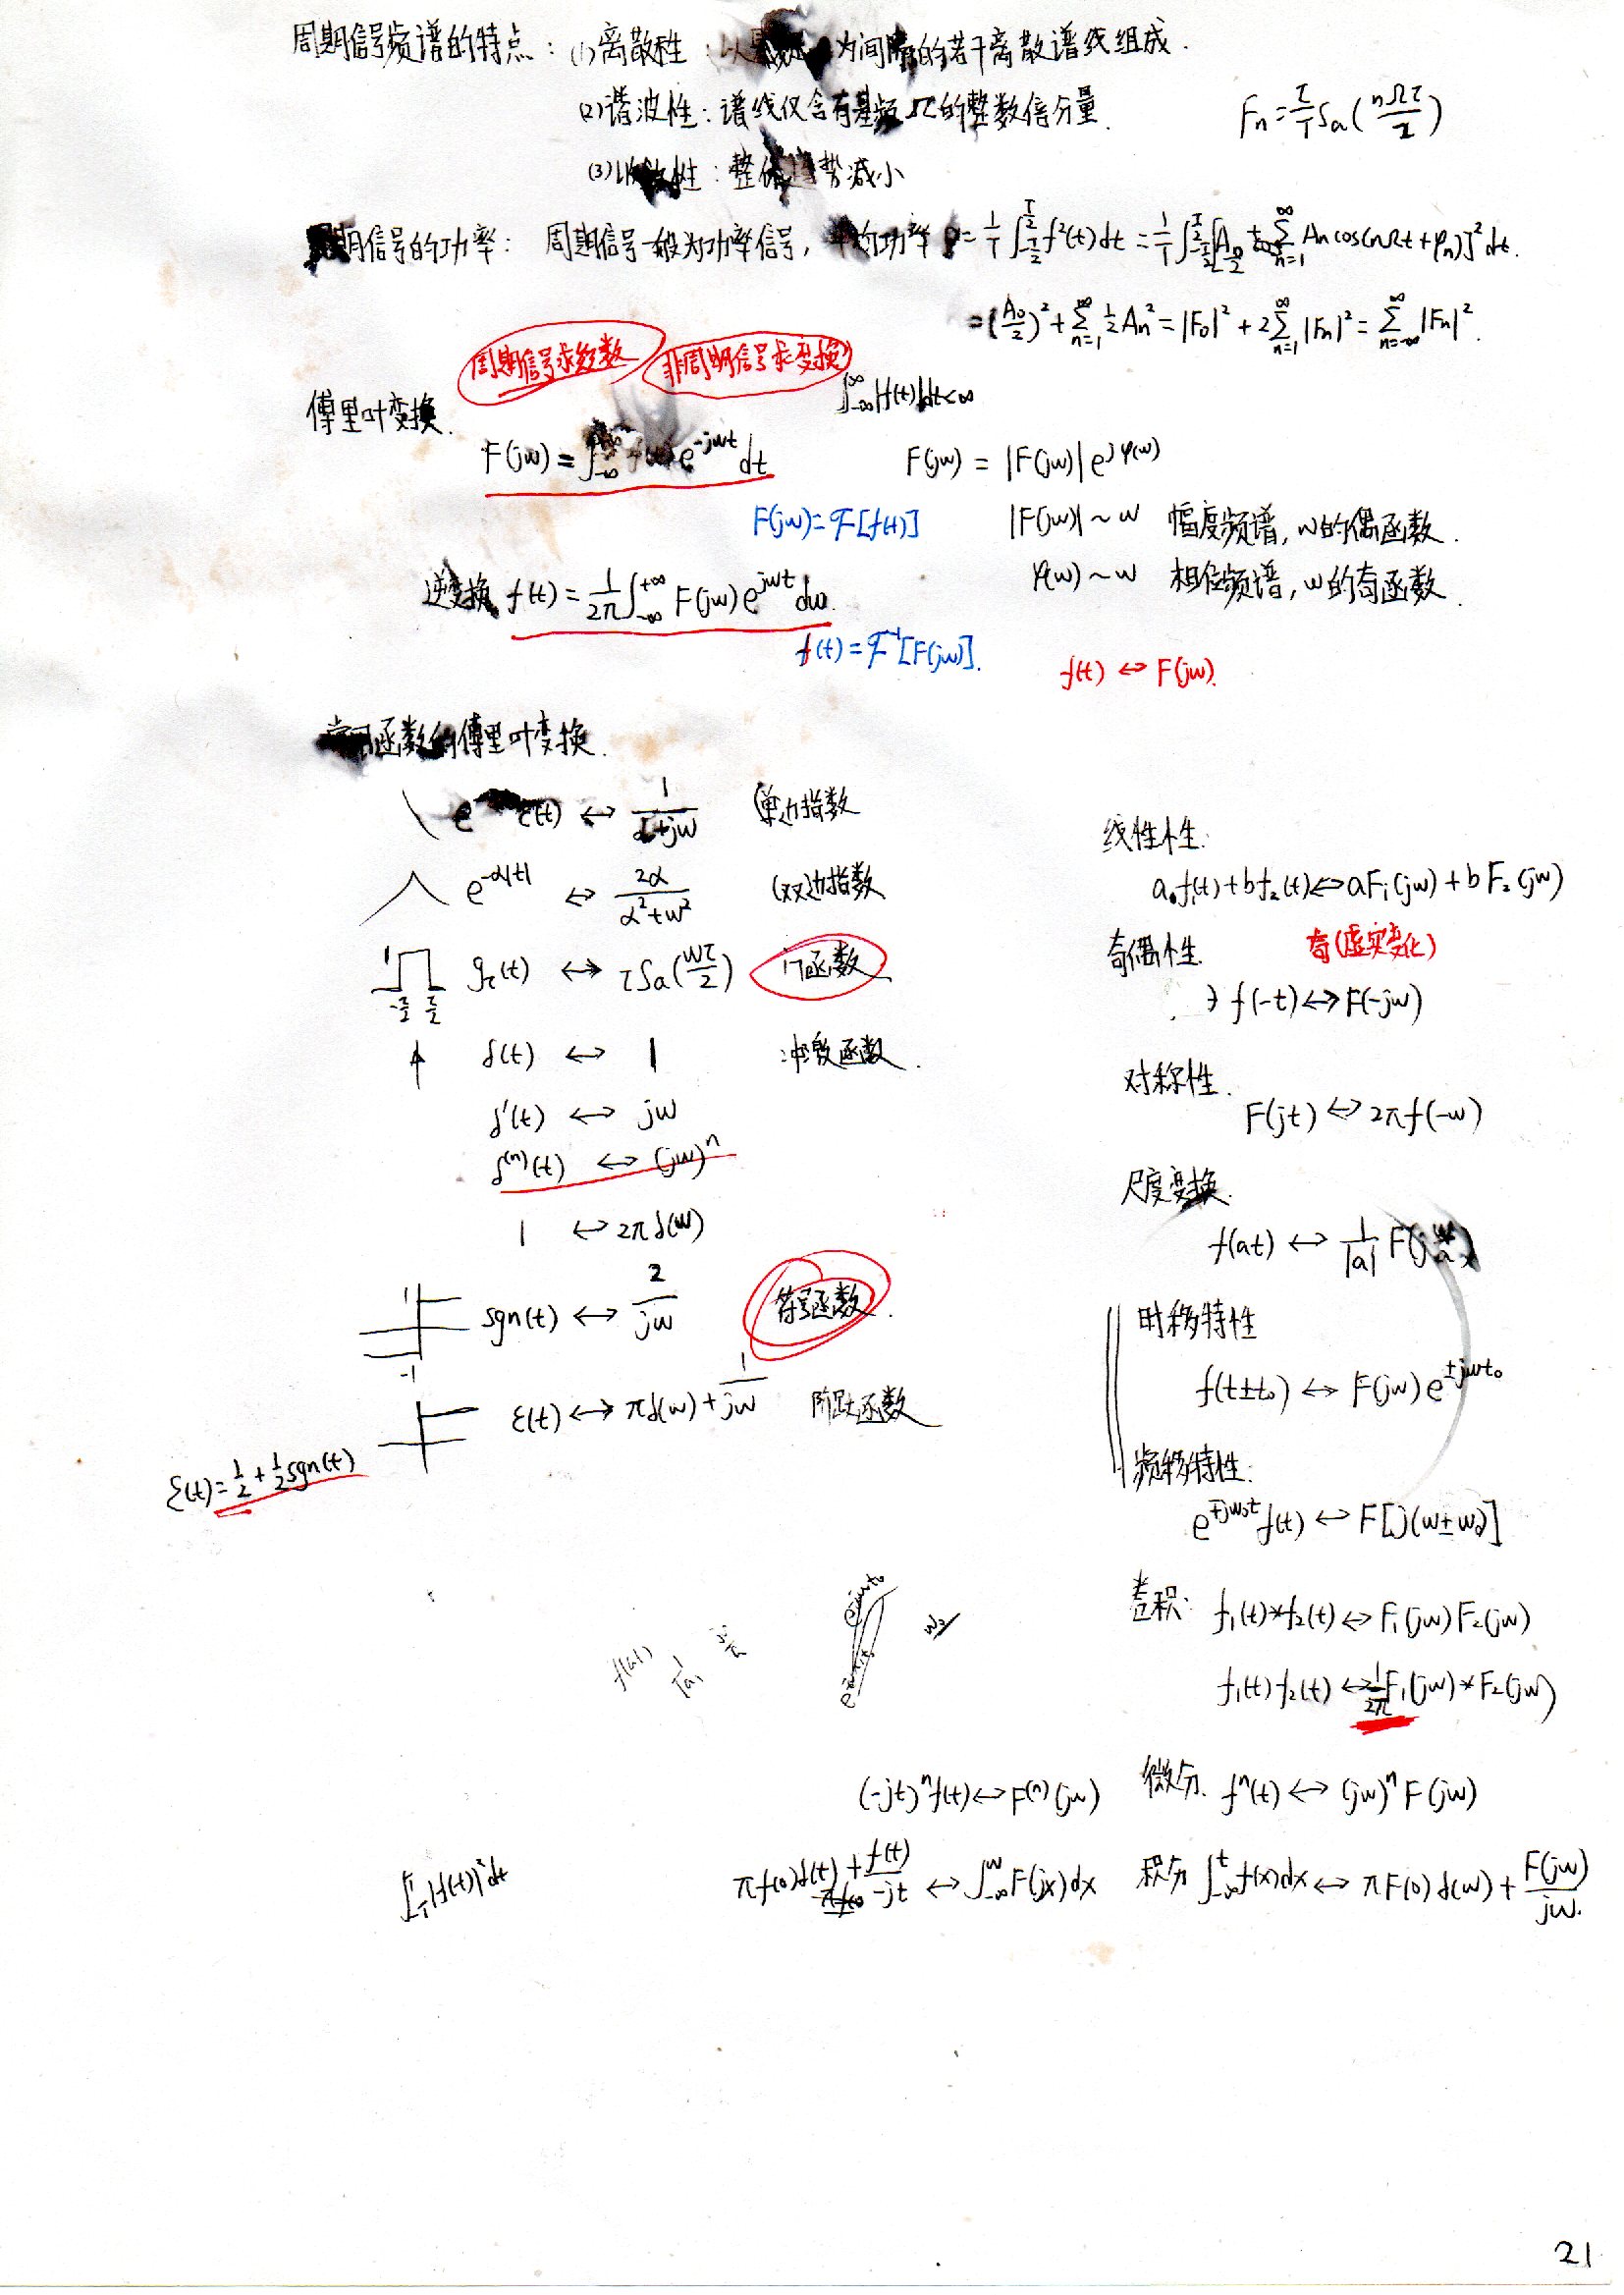 周期信号频谱的特点: (1)离散性: 以 为间隔的若干离散谱线组成.
(2)谐波性: 谱线仅含有基频Ω的整数倍分量.
Fn = τ/T Sa(nΩτ/2)
(3)收敛性: 整体趋势减小
周期信号的功率: 周期信号一般为功率信号, 平均功率 P = 1/T ∫_{-T/2}^{T/2} f²(t)dt = 1/T ∫_{-T/2}^{T/2} [A₀/2 + ∑_{n=1}^{∞} An cos(nΩt+φn)]² dt.
= (A₀/2)² + ∑_{n=1}^{∞} ½An² = |F₀|² + 2∑_{n=1}^{∞} |Fn|² = ∑_{n=-∞}^{∞} |Fn|².
周期信号求级数 非周期信号求变换
傅里叶变换. ∫_{-∞}^{∞} |f(t)|dt<∞
F(jω) = ∫_{-∞}^{+∞} f(t) e^{-jωt} dt
F(jω) = |F(jω)| e^{jφ(ω)}
F(jω) = ℱ[f(t)]
|F(jω)| ~ ω 幅度频谱, ω的偶函数.
φ(ω) ~ ω 相位频谱, ω的奇函数.
逆变换 f(t) = 1/2π ∫_{-∞}^{+∞} F(jω) e^{jωt} dω.
f(t) = ℱ⁻¹[F(jω)].
f(t) ↔ F(jω).
常用函数的傅里叶变换.
e ε(t) ↔ 1/(α+jω) 单边指数
e^{-α|t|} ↔ 2α/(α²+ω²) 双边指数
1 -τ/2 τ/2 g_τ(t) ↔ τSa(ωτ/2) 门函数
δ(t) ↔ 1 冲激函数.
δ'(t) ↔ jω
δ^{(n)}(t) ↔ (jω)^n
1 ↔ 2πδ(ω)
1 -1 sgn(t) ↔ 2/jω 符号函数.
ε(t) ↔ πδ(ω) + 1/jω 阶跃函数
ε(t) = ½ + ½sgn(t)
线性性:
a f₁(t) + b f₂(t) ↔ aF₁(jω) + bF₂(jω)
奇偶性. 奇(虚实变化)
f(-t) ↔ F(-jω)
对称性.
F(jt) ↔ 2πf(-ω)
尺度变换.
f(at) ↔ 1/|a| F(jω/a)
时移特性
f(t±t₀) ↔ F(jω) e^{±jωt₀}
频移特性:
e^{∓jω₀t} f(t) ↔ F[j(ω±ω₀)]
卷积: f₁(t)*f₂(t) ↔ F₁(jω)F₂(jω)
f₁(t)f₂(t) ↔ 1/2π F₁(jω)*F₂(jω)
f(at) 1/|a|
(-jt)^n f(t) ↔ F^{(n)}(jω) 微分. f^n(t) ↔ (jω)^n F(jω)
πf(0)δ(t) + f(t)/-jt ↔ ∫_{-∞}^{ω} F(jx)dx 积分 ∫_{-∞}^{t} f(x)dx ↔ πF(0)δ(ω) + F(jω)/jω.
∫_{-T}^{T} |f(t)|² dt
21